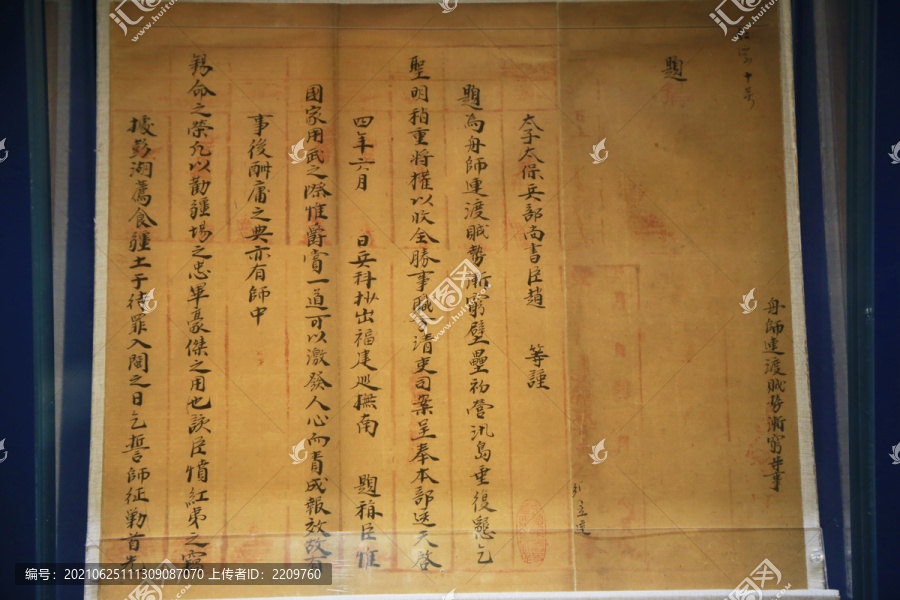 題
舟師連渡賊勢漸窮等事
太子太保兵部尚書臣趙 等謹
題為舟師連渡賊勢漸窮壁壘初營汛島垂復懇乞
聖明稍重將權以收全勝事職方清吏司案呈奉本部送天啓
四年六月 日兵科抄出福建巡撫南 題稱臣惟
國家用武之際惟爵賞一道可以激發人心而責成報效故有
事後酬庸之典亦有師中
錫命之榮凡以勸疆場之忠畢豪傑之用也該臣憤紅弟之竊
據彭湖薦食疆土于待罪入閩之日乞誓師征勦首先
编号：20210625111309087070 上传者ID：2209760
汇图网